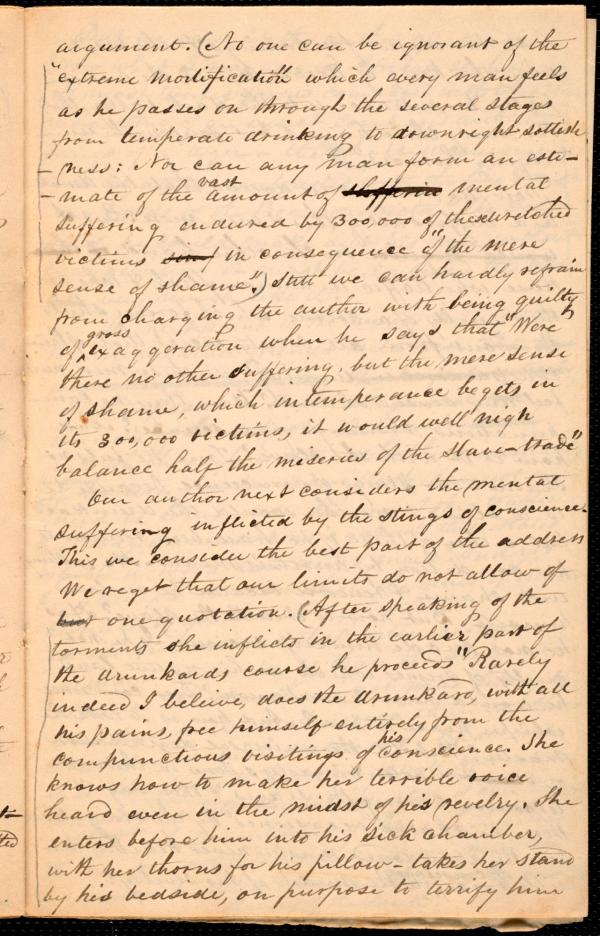 argument. (No one can be ignorant of the
"extreme mortification" which every man feels
as he passes on through the several stages
from temperate drinking to downright sottish
-ness: Nor can any man form an esti-
-mate of the vast amount of mental
suffering endured by 300,000 of these wretched
victims in consequence of "the mere
sense of shame".) Still we can hardly refrain
from charging the author with being guilty
of gross exaggeration when he says that "Were
there no other suffering, but the mere sense
of shame, which intemperance begets in
its 300,000 victims, it would well nigh
balance half the miseries of the slave-trade"
Our author next considers the mental
suffering inflicted by the stings of conscience.
This we consider the best part of the address
We reget that our limits do not allow of
but one quotation. (After speaking of the
torments she inflicts in the earlier part of
the drunkards course he proceeds "Rarely
indeed I beleive, does the drunkard, with all
his pains, free himself entirely from the
compunctious visitings of his conscience. She
knows how to make her terrible voice
heard even in the midst of his revelry. She
enters before him into his sick chamber,
with her thorns for his pillow - takes her stand
by his bedside, on purpose to terrify him